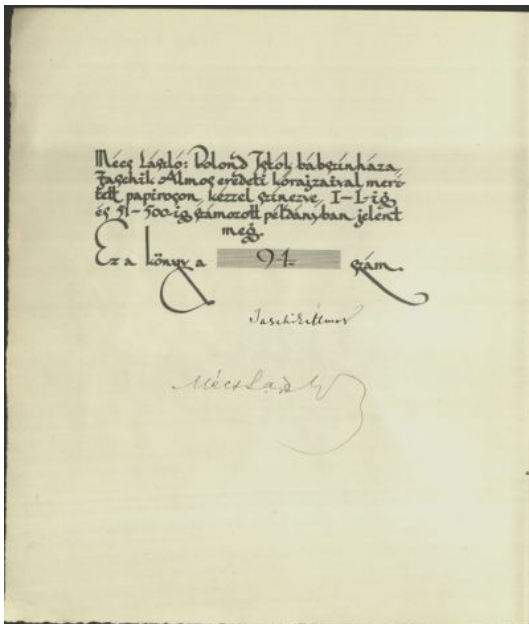 Mécs László: Bolond Istók bábszínháza
Jaschik Álmos eredeti kőrajzaival merí-
tett papiroson, kézzel színezve, I-L-ig
és 51-500-ig számozott példányban jelent
meg.
Ez a könyv a 91. szám.
Jaschik Álmos
Mécs László